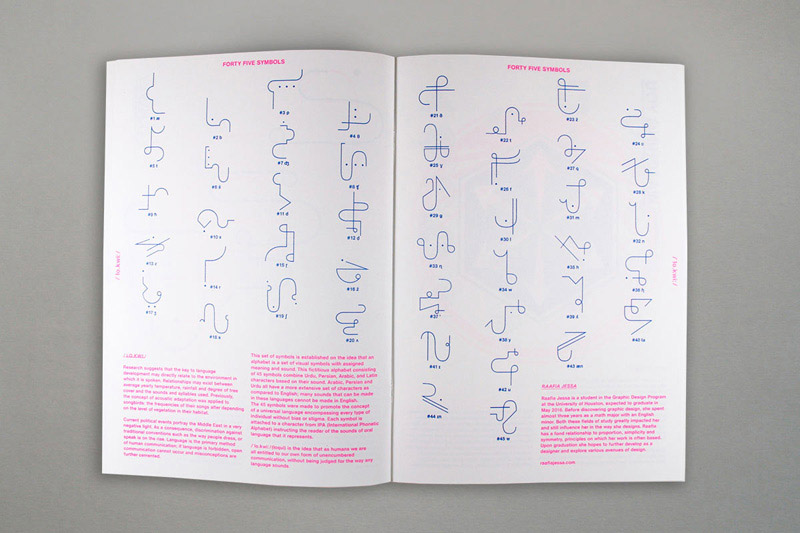 FORTY FIVE SYMBOLS
#2 b
#3 p
#4
#5 t
#7 ʤ
#9 h
#10 x
#11 d
#12 d
#13 r
#14 r
#15
#17 ʒ
#20 ʌ
/ lo.kwi /
/ LO.KWI /
Research suggests that the key to language
development may directly relate to the environment in
which it is spoken. Relationships may exist between
average yearly temperature, rainfall and degree of tree
cover and the sounds and syllables used. Previously,
the concept of acoustic adaptation was applied to
songbirds: the frequencies of their songs alter depending
on the level of vegetation in their habitat.
Current political events portray the Middle East in a very
negative light. As a consequence, discrimination against
traditional conventions such as the way people dress, or
speak is on the rise. Language is the primary method
of human communication; if language is forbidden, open
communication cannot occur and misconceptions are
further cemented.
This set of symbols is established on the idea that an
alphabet is a set of visual symbols with assigned
meaning and sound. This fictitious alphabet consisting
of 45 symbols combine Urdu, Persian, Arabic, and Latin
characters based on their sound. Arabic, Persian and
Urdu all have a more extensive set of characters as
compared to English; many sounds that can be made
in these languages cannot be made in English.
The 45 symbols were made to promote the concept
of a universal language encompassing every type of
individual without bias or stigma. Each symbol is
attached to a character from IPA (International Phonetic
Alphabet) instructing the reader of the sounds of oral
language that it represents.
is the idea that as humans we are
all entitled to our own form of unencumbered
communication, without being judged for the way any
language sounds.
FORTY FIVE SYMBOLS
#22 t
#24 c
#25 ɣ
#27 q
#28 k
#29 g
#30 l
#31 m
#32 n
#34 w
#42 u
#44 m
#45 w
/ lo.kwi /
RAAFIA JESSA
Raafia Jessa is a student in the Graphic Design Program
at the University of Houston, expected to graduate in
May 2018. Before discovering graphic design, she spent
almost three years as a math major with an English
minor. Both these fields of study greatly impacted her
and still influence her in the way she designs. Raafia
has a fond relationship to proportion, simplicity and
symmetry, principles on which her work is often based.
Upon graduation she hopes to further develop as a
designer and explore various avenues of design.
raafiajessa.com